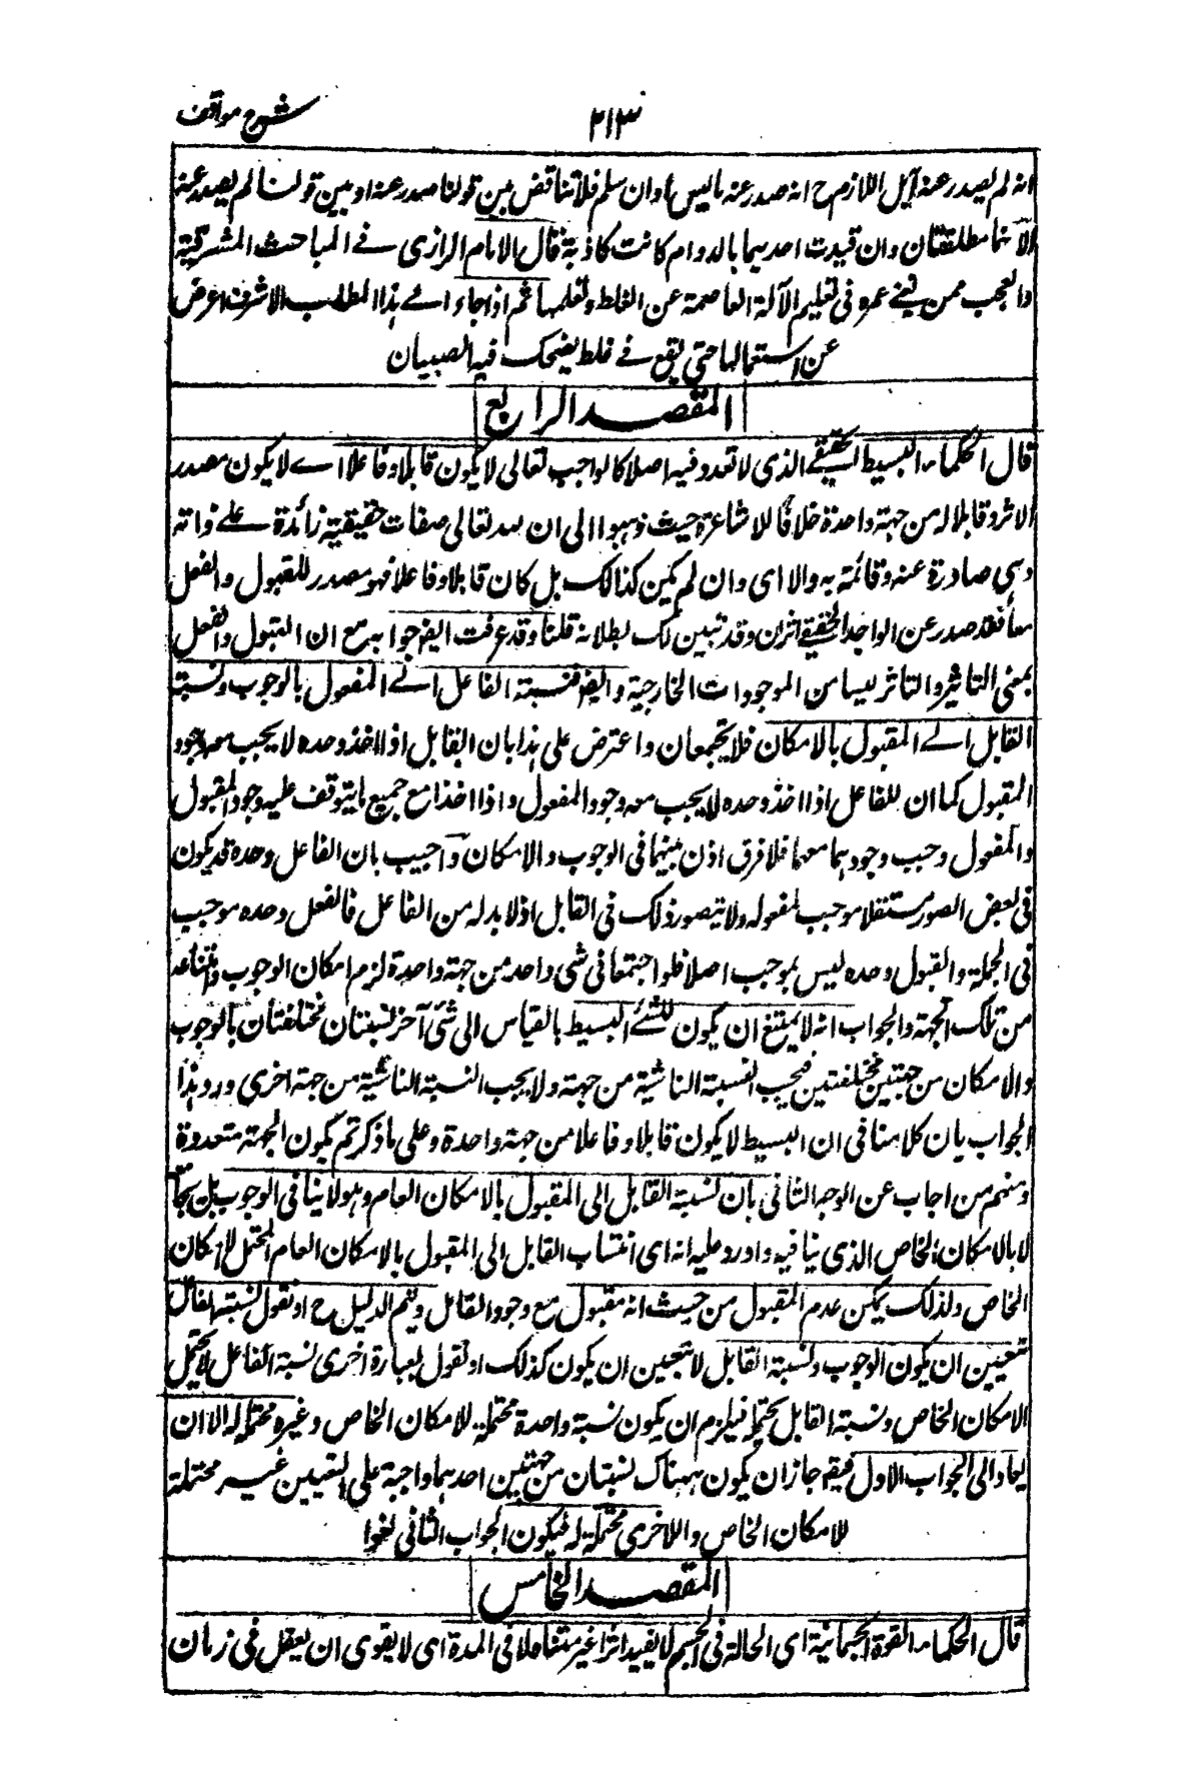 شرح مواقف
٢١٣
انه لم يصدر عنه أ بل اللازم ح انه صدر عنه ما ليس أ وان سلم فلا تناقض بين قولنا صدر عنه ا و بين قولنا لم يصدر عنه
لأنهما مطلقتان وان قيدت احديهما بالدوام كانت كاذبة قال الامام الرازى فے المباحث المشرقية
والعجب ممن يفنے عمره فى تعليم الآلة العاصمة عن الغلط وتعلمها ثم اذا جاء الے هذا المطلب الاشرف اعرض
عن استعمالها حتى يقع فے غلط يضحك فيه الصبيان
المقصد الرابع
قال الحكماء البسيط الحقيقے الذى لا تعدد فيه اصلا كالواجب تعالى لا يكون قابلا وفاعلا اے لا يكون مصدر
الاثر وقابلا له من جهة واحدة خلافًا للاشاعرة حيث ذهبوا الى ان لله تعالى صفات حقيقية زائدة علے ذاته
وهى صادرة عنه وقائمة به والا اى وان لم يكن كذلك بل كان قابلا وفاعلا فهو مصدر للقبول والفعل
معا فقد صدر عن الواحد الحقيقے اثران وقد تبين لك بطلانه قلنا وقد عرفت ايضا جوابه مع ان القبول والفعل
بمعنى التاثير والتاثر ليسا من الموجودات الخارجية وايضا فنسبة الفاعل الے المفعول بالوجوب ونسبة
القابل الے المقبول بالامكان فلا يجتمعان واعترض على هذا بان القابل اذا اخذ وحده لا يجب معه وجود
المقبول كما ان للفاعل اذا اخذ وحده لا يجب معه وجود المفعول واذا اخذا مع جميع ما يتوقف عليه وجود المقبول
والمفعول وجب وجودهما معهما فلا فرق اذن بينهما فى الوجوب والامكان واجيب بان الفاعل وحده قد يكون
فى بعض الصور مستقلا موجب لمفعوله ولا يتصور ذلك فى القابل اذ لا بد له من الفاعل فالفعل وحده موجب
فى الجملة والقبول وحده ليس بموجب اصلا فلو اجتمعا فى شى واحد من جهة واحدة لزم امكان الوجوب وامتناعه
من تلك الجهة والجواب انه لا يمتنع ان يكون للشئے البسيط بالقياس الى شئ آخر نسبتان مختلفتان بالوجوب
والامكان من جهتين مختلفتين فيجب النسبة الناشية من جهة ولا يجب النسبة الناشئية من جهة اخرى ورد هذا
الجواب بان كلامنا فى ان البسيط لا يكون قابلا وفاعلا من جهة واحدة وعلى ما ذكرتم يكون الجهة متعددة
ومنهم من اجاب عن الوجه الثانى بان نسبة القابل الى المقبول بالامكان العام وهو لا ينافى الوجوب بل يجامعه
لا بالامكان الخاص الذى ينافيه واورد عليه انه اى انتساب القابل الى المقبول بالامكان العام المحتمل للامكان
الخاص ولذلك يمكن عدم المقبول من حيث انه مقبول مع وجود القابل ويتم الدليل ح او نقول نسبة الفاعل
تعيين ان يكون الوجوب ونسبة القابل لا يتعين ان يكون كذلك او نقول بعبارة اخرى نسبة الفاعل لا يحتمل
الامكان الخاص ونسبة القابل يحتمله فيلزم ان يكون نسبة واحدة محتملة للامكان الخاص وغيره محتملة له الا ان
يعاد الى الجواب الاول فيقم جاز ان يكون ههناك نسبتان من جهتين احدهما واجبة على التعيين غير محتملة
للامكان الخاص واللاخرى محتملة له فيكون الجواب الثانى لغوا
المقصد الخامس
قال الحكماء القوة الجسمانية اى الحالة فى الجسم لا يفيد اثرا غير متناه لا فى المدة اى لا يقوى ان يعقل فى زمان